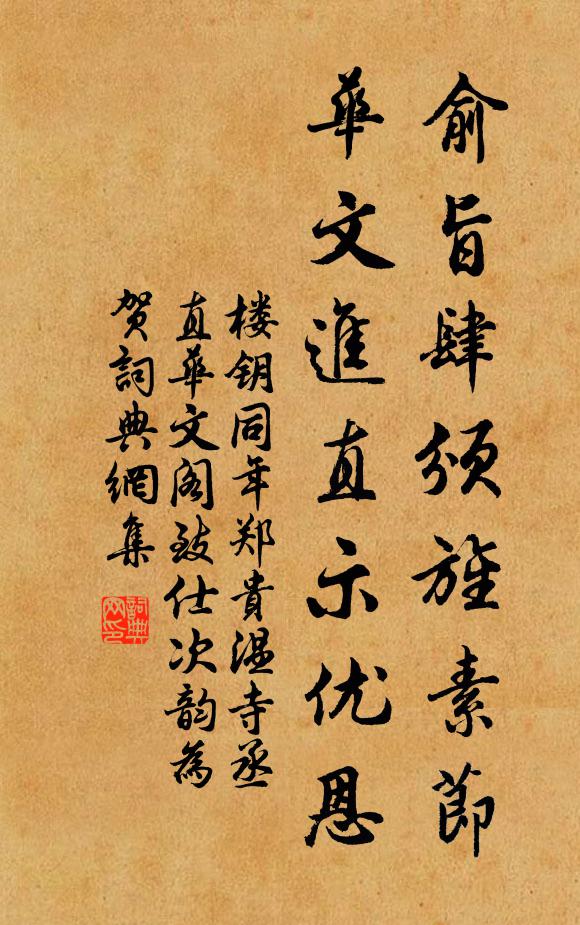 俞旨肆颁旌素節
華文進直示优恩
楼钥同年郑貴温寺丞
直華文阁致仕次韵為
贺詞典網集
詞典网印